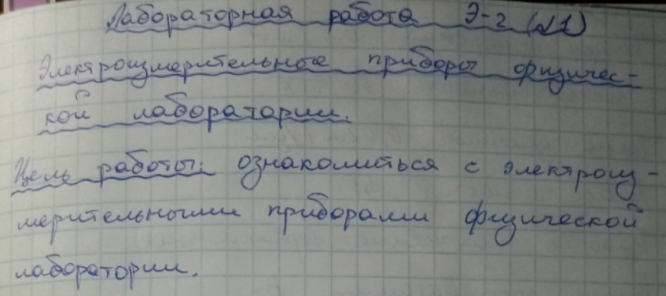 Лабораторная работа Э-2 (№1)
Электроизмерительные приборы физичес-
кой лаборатории.
Цель работы: ознакомиться с электроиз-
мерительными приборами физической
лаборатории.